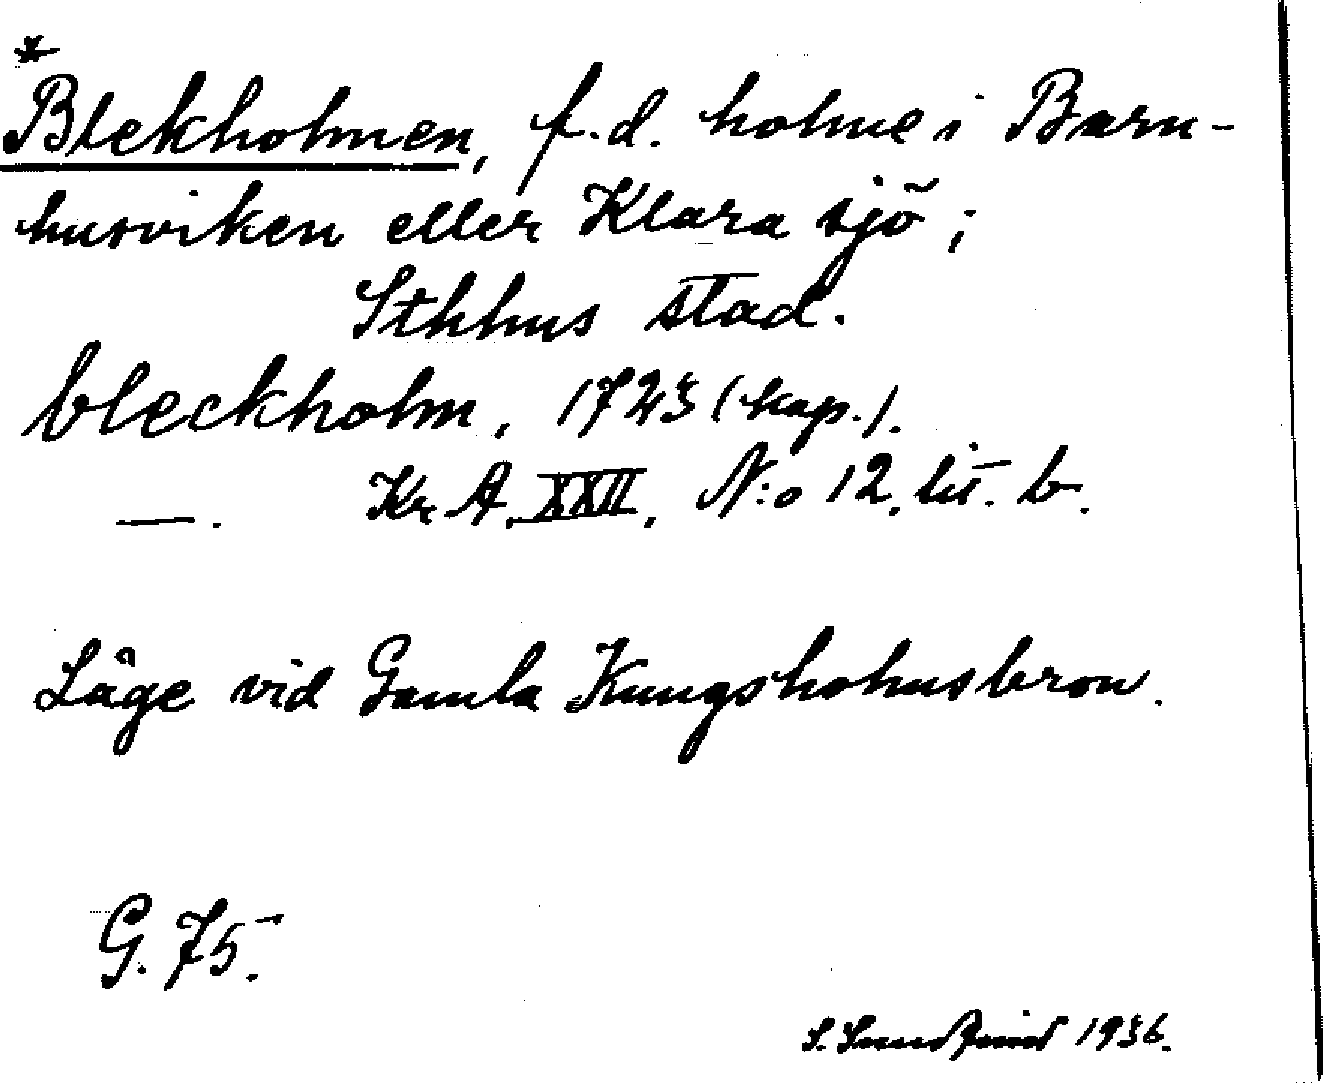 *
Blekholmen, f.d. holme i Barn-
husviken eller Klara sjö;
Sthlms stad.
bleckholm, 1723 (kop.).
—. Kr. A. XXII, N:o 12. lit. b.
Läge vid Gamla Kungsholmsbron.
G. 75.
S. 1936.